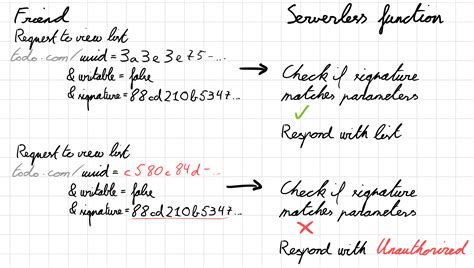 Friend
Request to view list
todo.com/uuid=3a3e3e75-...
& writable = false
& signature = 88cd210b5347...
Serverless function
Check if signature
matches parameters
Respond with list
Request to view list
todo.com/uuid=c580c84d-...
& writable = false
& signature = 88cd210b5347...
Check if signature
matches parameters
Respond with Unauthorized